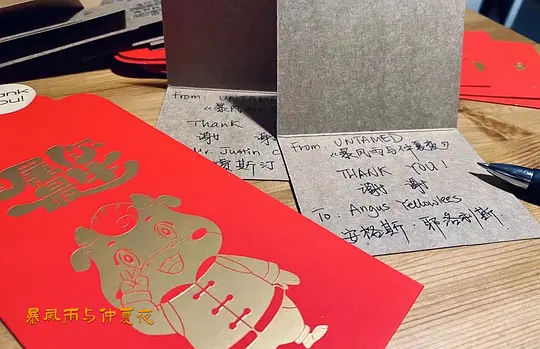 ank
ou!
From: UNTAM
《暴风雨
Thank
谢 谢
Mr. Justin C
斯汀
From: UNTAMED
《暴风雨与仲夏夜》
THANK YOU!
谢 谢
To: Angus Yellowlees
安格斯·耶洛利斯
暴風雨与仲夏夜